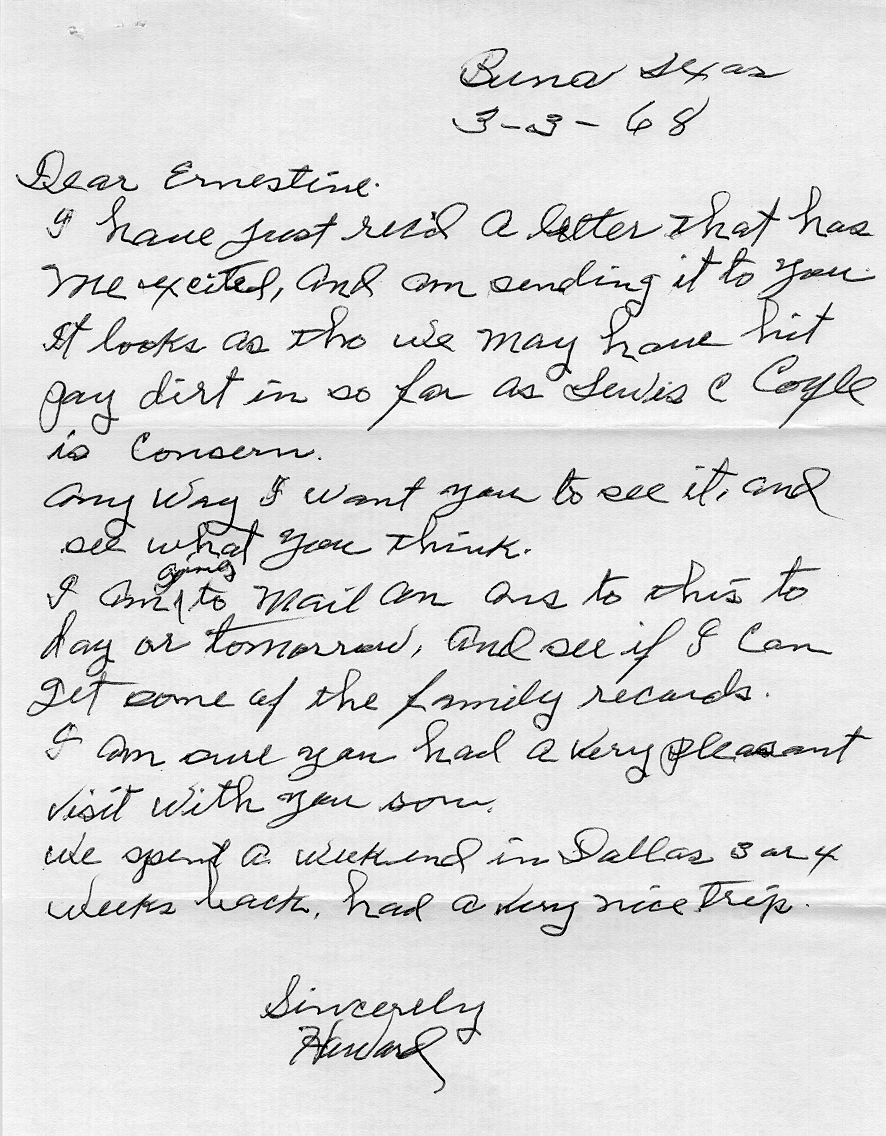 Buna Texas
3-3-68
Dear Ernestine.
I have just rec'd a letter that has
me excited, and am sending it to you.
It looks as tho we may have hit
pay dirt in so far as Lewis C Coyle
is concern.
any way I want you to see it, and
see what you think.
going
I am to mail an ans to this to
day or tomorrow, and see if I can
get some of the family records.
I am sure you had a very pleasant
visit with you son.
we spent a weekend in Dallas 3 or 4
weeks back, had a very nice trip.
Sincerely
Howard